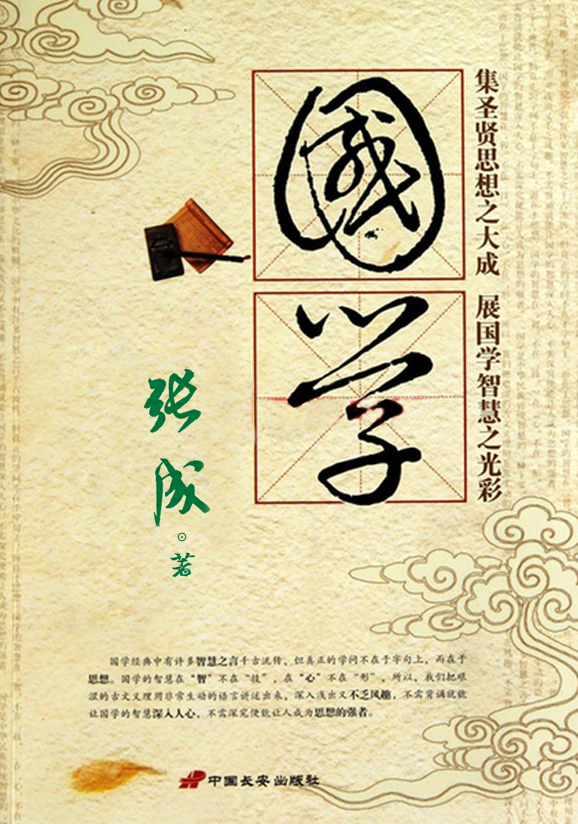 集圣贤思想之大成 展国学智慧之光彩
國学
张成⊙著
国学经典中有许多智慧之言千古流传，但真正的学问不在于字句上，而在于
思想。国学的智慧在“智”不在“技”，在“心”不在“形”，所以，我们把艰
涩的古文义理用非常生动的语言讲述出来，深入浅出又不乏风趣，不需背诵就能
让国学的智慧深入人心，不需深究便能让人成为思想的强者。
中国长安出版社